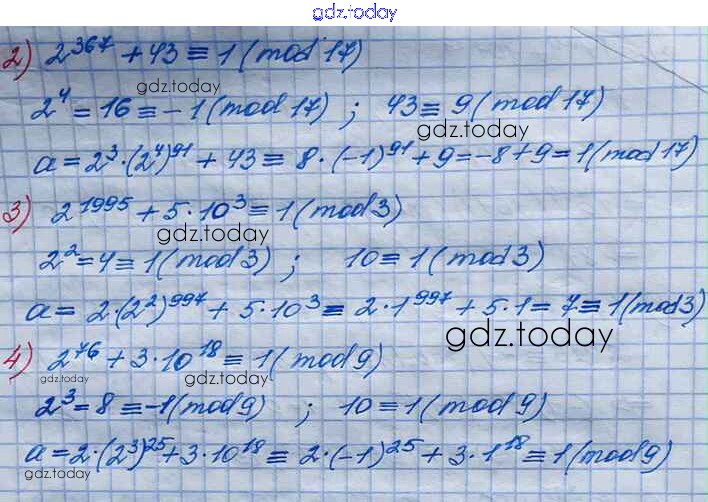 gdz.today
2) 2^367 + 43 ≡ 1 (mod 17)
gdz.today
2^4 = 16 ≡ -1 (mod 17) ; 43 ≡ 9 (mod 17)
gdz.today
a = 2^3 · (2^4)^91 + 43 ≡ 8 · (-1)^91 + 9 = -8 + 9 = 1 (mod 17)
3) 2^1995 + 5 · 10^3 ≡ 1 (mod 3)
gdz.today
2^2 = 4 ≡ 1 (mod 3) ; 10 ≡ 1 (mod 3)
a = 2 · (2^2)^997 + 5 · 10^3 ≡ 2 · 1^997 + 5 · 1 = 7 ≡ 1 (mod 3)
gdz.today
4) 2^76 + 3 · 10^18 ≡ 1 (mod 9)
gdz.today gdz.today
2^3 = 8 ≡ -1 (mod 9) ; 10 ≡ 1 (mod 9)
a = 2 · (2^3)^25 + 3 · 10^18 ≡ 2 · (-1)^25 + 3 · 1^18 ≡ 1 (mod 9)
gdz.today gdz.today